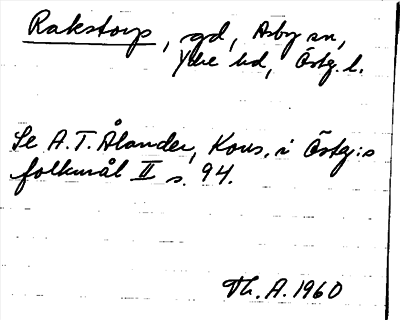 Rakstorp, gd, Asby sn,
Ydre hd, Östg. l.
Se A. T. Ålander, Kons. i Östg:s
folkmål II s. 94.
Th. A. 1960